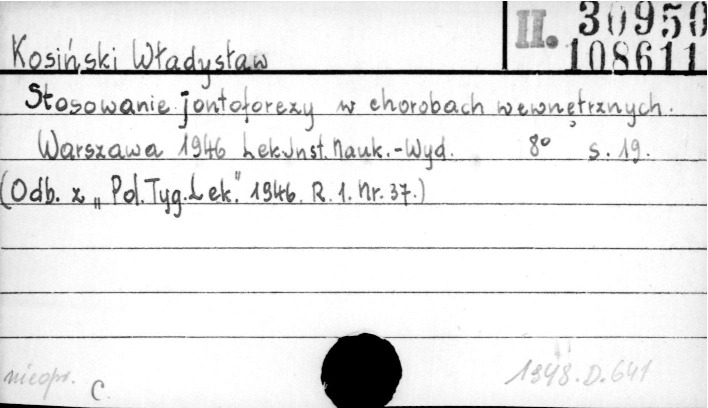 II. 30950
108611
Kosiński Władysław
Stosowanie jontoforezy w chorobach wewnętrznych.
Warszawa 1946 Lek.Inst.Nauk.-Wyd. 8° s. 19.
(Odb. z „Pol.Tyg.Lek." 1946. R. 1. Nr. 37.)
nieopr. C.
1948.D.641